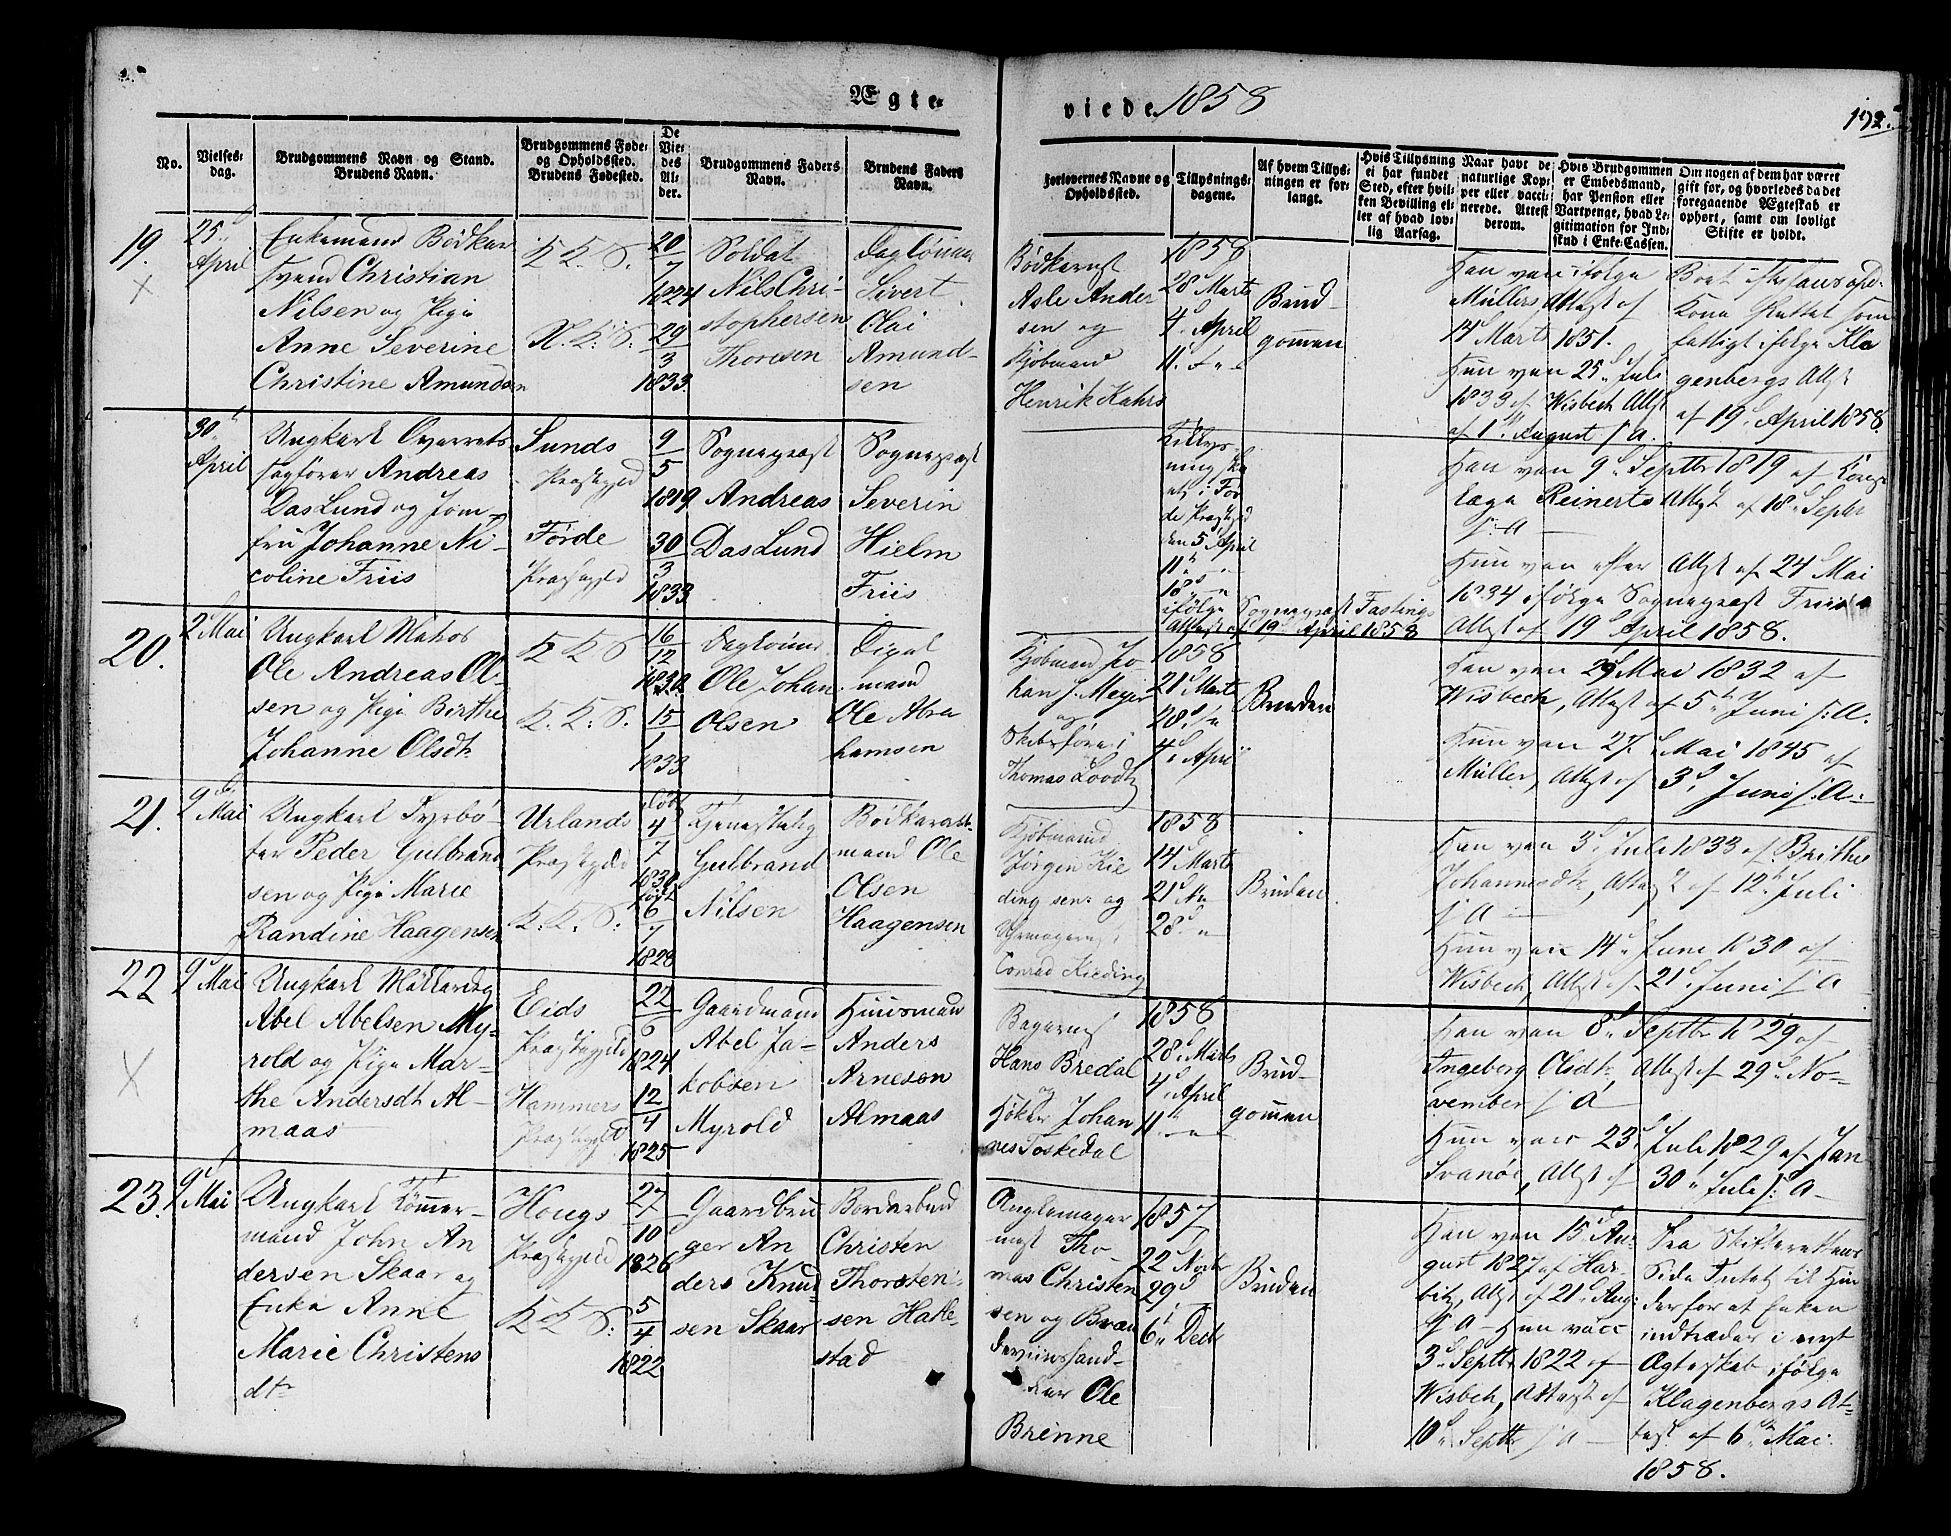 Ægte-
viede 1858
192.
No.
Vielses-
dag.
Brudgommens Navn og Stand.
Brudens Navn.
Brudgommens Føde-
og Opholdssted.
Brudens Fødested.
De
Vie-
des
Al-
der.
Brudgommens Faders
Navn.
Brudens Faders
Navn.
Forlovernes Navne og
Opholdssted.
Tillysnings-
dagene.
Af hvem Tillys-
ningen er for-
langt.
Hvis Tillysning
ei har fundet
Sted, efter hvil-
ken Bevilling el-
ler af hvad lov-
lig Aarsag.
Naar havt de
naturlige Kop-
per eller vacci-
nerede. Attest
derom.
Hvis Brudgommen
er Embedsmand,
har Pension eller
Vartpenge, hvad Le-
gitimation for Ind-
skud i Enke-Cassen.
Om nogen af dem har været
gift før, og hvorledes da det
foregaaende Ægteskab er
ophørt, samt om lovligt
Skifte er holdt.
19.
25
April
Enkemand Bødker
svend Christian
Nilsen og Pige
Anne Severine
Christine Amundsen
K. K. S.
K. K. S.
20
7
1824
29
3
1833
Soldat
Nils Chri-
stophersen
Thoresen
Dagløner
Sivert
Olai
Amund-
sen
Bødkermst
Asle Ander
sen og
Kjøbmand
Henrik Kahrs
1858
28 Marts
4 April
11.
Brud-
gommen
Han vacc ifølge
Müllers Attest af
14 Marts 1851.
Hun vacc 25 Juli
1833 af Wisbech Attst
af 1 August s. A.
Boet efter hans afd.
Kone Skiftet som
fattigt ifølge Kla
genbergs Attst
af 19 April 1858.
30
April
Ungkarl Overrets
sagfører Andreas
Das Lund og Jom-
fru Johanne Ni-
coline Friis
Sunds
Præstegjeld
Førde
Præstegjeld
9
5
1819
30
3
1833
Sognepræst
Andreas
Das Lund
Sognepræst
Severin
Hielm
Friis
Tillys-
ning ske
et i För
de Præstegjeld
den 5 April
11
18
ifølge Sognepræst Fastings
Attest af 19 April 1858
Han vacc 9 Septbr 1819 af
Læge Reinerts Attest af 18 Septbr
s. A.
Hun vacc efter Attst af 24 Mai
1834 ifølge Sognepræst Friis's
Attest af 19 April 1858.
20.
2 Mai
Ungkarl Matros
Ole Andreas Ol-
sen og Pige Birthe
Johanne Olsdtr
K K S
K. K. S.
16
12
1830
15
1
1833
Dagløner
Ole Johan
Olsen
Ole Abra
hamsen
Kjøbmand Jo
han J. Meyer
og
Skibsfører
Thomas Loodtz
1858
21 Marts
28.
4 April
Bruden
Han vacc 29 Mai 1832 af
Wisbech, Attest af 5 Juni s. A.
Hun vacc 27 Mai 1845 af
Müller, Attest af 3 Juni s. A.
21.
9
Mai
Ungkarl Fyrbø-
ter Peder Gulbrand
sen og Pige Marie
Randine Haagensen
Urlands
Præstegjeld
K. K. S.
døbt
4
7
1830
døbt
6
7
1828
Gulbrand
Nilsen
Bødkersvend
Ole
Olsen
Haagensen
Kjøbmand
Jørgen Kie
ding sen: og
Uhrmagermst
Conrad Kieding
1858
14 Marts
21
28
Bruden
Han vacc 3 Juli 1833 af Brithe
Johannesdtr, Attest af 12 Juli
s. A.
Hun vacc 14 Juni 1830 af
Wisbech, Attest af 21 Juni s. A.
22
9 Mai
Ungkarl
Abel Abelsen My-
rold og Pige Mar-
the Andersdtr Al-
maas
Eids
Præstegjeld
Hammers
Præstegjeld
22
6
1824
12
4
1825
Gaardmand
Abel Ja-
kobsen
Myrold
Huusmand
Anders
Arnesen
Almaas
Bagermst
Hans Bredal
og
Høker Johan
nes Toskedal
1858
28 Marts
4 April
11
Brud-
gommen
Han vacc 8 Septbr 1829 af
Ingeborg Olsdtr, Attest af 29 No-
vember s. A.
Hun vacc 23 Juli 1829 af Jan
Svanøe, Attst af 30 Juli s. A.
23.
9 Mai
Ungkarl Tømmer-
mand John An
dersen Skaar og
Enke Anne
Marie Christens
dtr
Hougs
Præstegjeld
K K S.
27
10
1826
5
4
1822
Gaardbru
ger An
ders Knud-
sen Skaar
Christen
Thorsten-
sen Hatle-
stad
mst Tho-
mas Christen
sen og Bræn
deviinshand-
ler Ole
Brenne
1857
22 Novbr
29
6 Decbr
Bruden
Han vacc 15 Au-
gust 1827 af Har-
bitz, Attst af 21 Aug:
s. A. Hun vacc
3 Septbr 1822 af
Wisbech, Attest af
10 Septbr s. A.
Fra Skifterettens
Side Intet til Hin
der for at Enken
indtræder i nyt
Ægteskab ifølge
Klagenbergs At-
test af 6 Mai
1858.